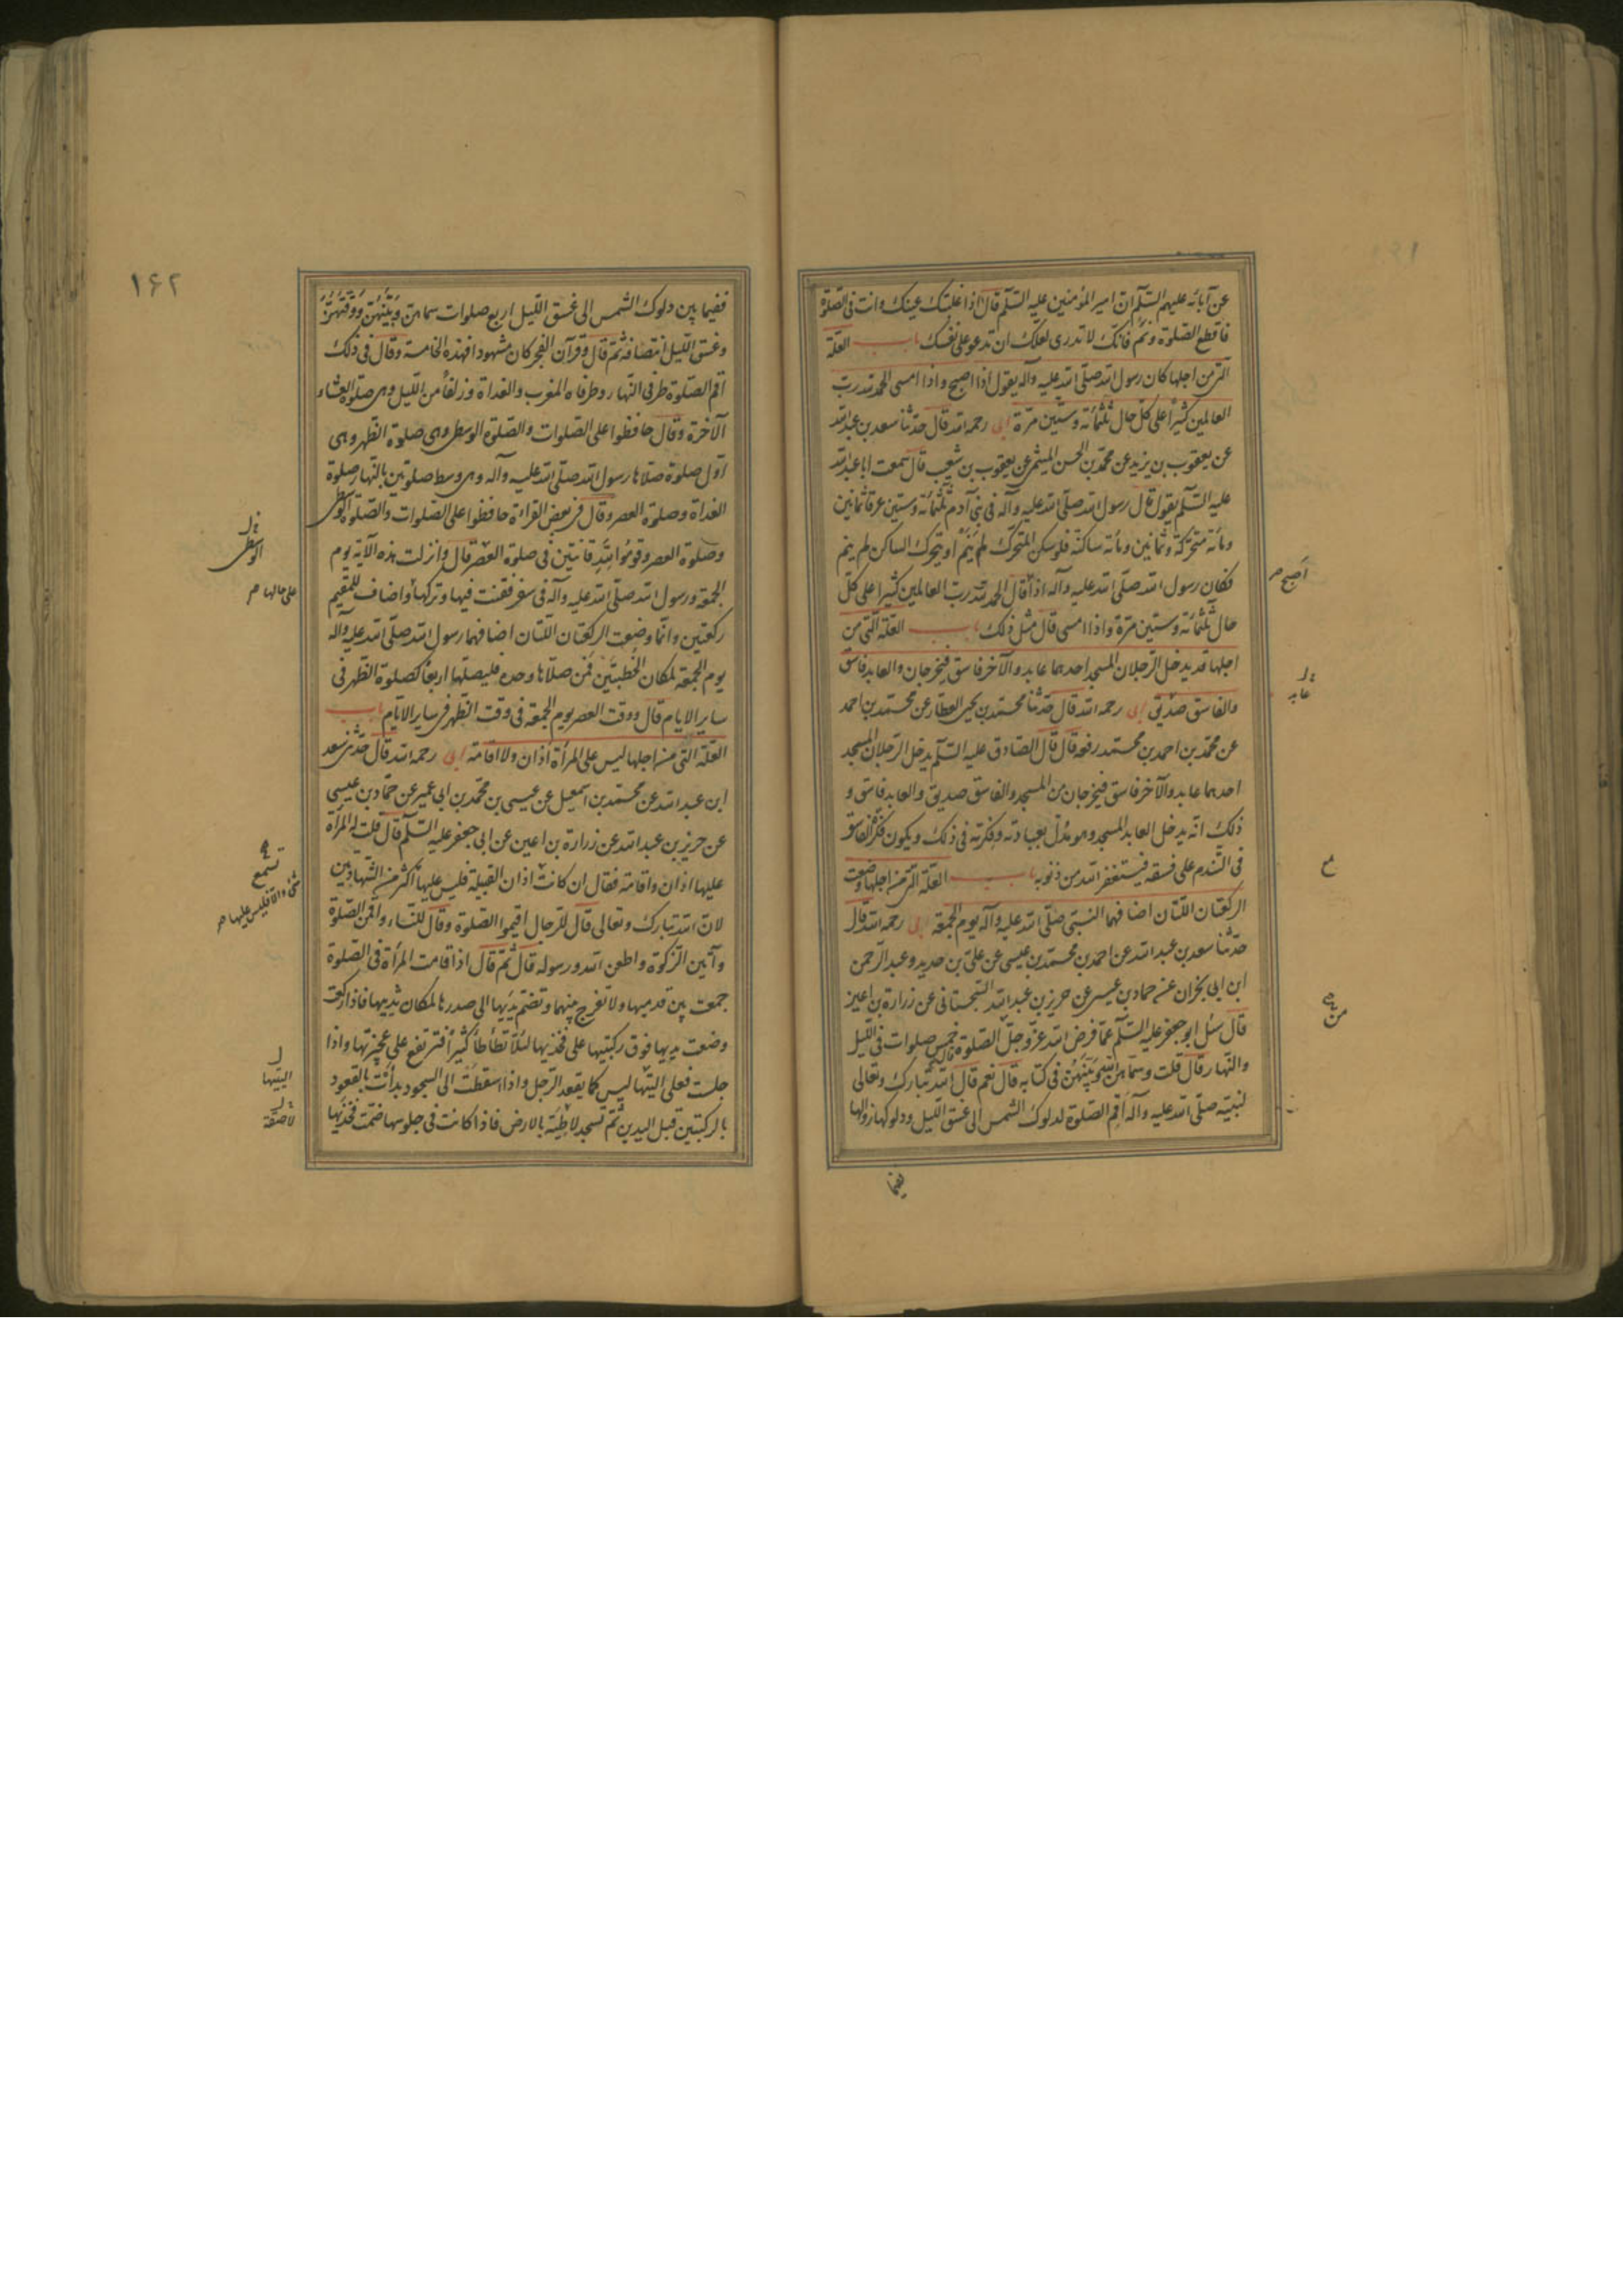 عن آبائه عليهم السّلم انّ امير المؤمنين عليه السّلم قال اذا غلبتك عينك وانت فى الصّلوة
فاقطع الصّلوة ونم فانّك لا تدرى لعلّك ان تدعو على نفسك باب العلّة
الّتى من اجلها كان رسول الله صلّى الله عليه وآله يقول اذا اصبح واذا امسى الحمد لله ربّ
العالمين كثيرًا على كلّ حال ثلثمائة وستّين مرّة ابى رحمه الله قال حدّثنا سعد بن عبد الله
عن يعقوب بن يزيد عن محمّد بن الحسن الميثمى عن يعقوب بن شعيب قال سمعت ابا عبد الله
عليه السّلم يقول قال رسول الله صلّى الله عليه وآله فى بنى آدم ثلثمائة وستّين عرقا ثمانين
ومائة متحرّكة وثمانين ومائة ساكنة فلو سكن المتحرّك لم ينم او يتحرّك الساكن لم ينم
فكان رسول الله صلّى الله عليه وآله اذا قال الحمد لله ربّ العالمين كثيرا على كلّ
اصبح صح
حال ثلثمائة وستّين مرّة واذا امسى قال مثل ذلك باب العلّة الّتى من
اجلها قد يدخل الرّجلان المسجد احدهما عابد والآخر فاسق فيخرجان والعابد فاسق
عابد
والفاسق صدّيق ابى رحمه الله قال حدّثنا محمّد بن يحيى العطّار عن محمّد بن احمد
عن محمّد بن احمد بن محمّد رفعه قال قال الصّادق عليه السّلم يدخل الرّجلان المسجد
احدهما عابد والآخر فاسق فيخرجان من المسجد والفاسق صديق والعابد فاسق و
ذلك انّه يدخل العابد المسجد وهو مدلّ بعبادته وفكرته فى ذلك ويكون فكر الفاسق
فى التّندم على فسقه فيستغفر الله من ذنوبه باب العلّة الّتى من اجلها وضعت
الركعتان اللّتان اضافهما النّبىّ صلّى الله عليه وآله يوم الجمعة ابى رحمه الله قال
حدّثنا سعد بن عبد الله عن احمد بن محمّد بن عيسى عن علىّ بن حديد وعبد الرّحمن
ابن ابى نجران عن حماد بن عيسى عن حريز بن عبد الله السّجستانى عن زرارة بن اعين
قال سئل ابو جعفر عليه السّلم عمّا فرض الله عزّ وجلّ الصّلوة قال خمس صلوات فى اللّيل
والنّهار قال قلت وسمّاهنّ الله وبيّنهنّ فى كتابه قال نعم قال الله تبارك وتعالى
لنبيّه صلّى الله عليه وآله اقم الصّلوة لدلوك الشمس الى غسق اللّيل ودلوكها زوالها
فيما
١٦٢
ففيما بين دلوك الشمس الى غسق اللّيل اربع صلوات سماهنّ وبيّنهنّ ووقّتهنّ
وغسق اللّيل انتصافه ثمّ قال وقرآن الفجر كان مشهودا فهذه الخامسة وقال فى ذلك
اقم الصّلوة طرفى النّهار وطرفاه المغرب والغداة وزلفا من اللّيل وهى صلوة العشاء
الآخرة وقال حافظوا على الصّلوات والصّلوة الوسطى وهى صلوة الظهر وهى
اوّل صلوة صلاها رسول الله صلّى الله عليه وآله وهى وسط صلوتين بالنّهار صلوة
الغداة وصلوة العصر وقال فى بعض القراءة حافظوا على الصّلوات والصّلوة الوسطى
الوسطى
وصلوة العصر وقوموا لله قانتين فى صلوة العصر قال وانزلت هذه الآية يوم
الجمعة ورسول الله صلّى الله عليه وآله فى سفر فقنت فيها وتركها واضاف للمقيم
على حالها صح
ركعتين وانّما وضعت الركعتان اللّتان اضافهما رسول الله صلّى الله عليه وآله
يوم الجمعة لمكان الخطبتين فمن صلّاها وحده فليصلّها اربعا كصلوة الظهر فى
ساير الايام قال ووقت العصر يوم الجمعة فى وقت الظهر فى ساير الايّام باب
العلّة الّتى من اجلها ليس على المرأة اذان ولا اقامة ابى رحمه الله قال حدّثنى سعد
ابن عبد الله عن محمّد بن اسمعيل عن عيسى بن محمّد بن ابى عمير عن حمّاد بن عيسى
عن حريز بن عبد الله عن زرارة بن اعين عن ابى جعفر عليه السّلم قال قلت له المرأة
عليها اذان واقامة فقال ان كانت اذان القبيلة فليس عليها اكثر من الشّهادتين
تسمع
والا فليس عليها صح
لانّ الله تبارك وتعالى قال للرّجال اقيموا الصّلوة وقال للنّساء واقمن الصّلوة
وآتين الزّكوة واطعن الله ورسوله قال ثمّ قال اذا قامت المرأة فى الصّلوة
جمعت بين قدميها ولا تفرج بينهما وتضمّ يديها الى صدرها لمكان ثدييها فاذا ركعت
وضعت يديها فوق ركبتيها على فخذيها لئلّا تطأطأ كثيرًا فترتفع على عجيزتها واذا
جلست فعلى اليتها ليس كما يقعد الرّجل واذا سقطت الى السجود بدأت بالقعود
اليتيها
بالركبتين قبل اليدين ثمّ تسجد لاطئة بالارض فاذا كانت فى جلوسها ضمّت فخذيها
لاصقة